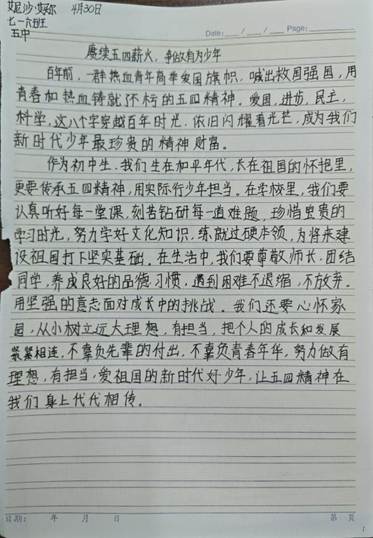 艾尼沙·艾尔 4月30日
七一六班
五中
Date: / / Page:
赓续五四薪火,争做有为少年
百年前,一群热血青年高举爱国旗帜,喊出救国强国,用
青春和热血铸就不朽的五四精神。爱国,进步,民主,
科学,这八个字穿越百年时光,依旧闪耀着光芒,成为我们
新时代少年最珍贵的精神财富。
作为初中生,我们生在和平年代,长在祖国的怀抱里,
更要传承五四精神,用实际行少年担当。在学校里,我们要
认真听好每一堂课,刻苦钻研每一道难题,珍惜宝贵的
学习时光,努力学好文化知识,练就过硬本领,为将来建
设祖国打下坚实基础。在生活中,我们要尊敬师长,团结
同学,养成良好的品德习惯,遇到困难不退缩,不放弃。
用坚强的意志面对成长中的挑战。我们还要心怀家
国,从小树立远大理想,有担当,把个人的成长和发展
紧紧相连,不辜负先辈的付出,不辜负青春年华,努力做有
理想,有担当,爱祖国的新时代好少年,让五四精神在
我们身上代代相传。
日期: 年 月 日 第 页